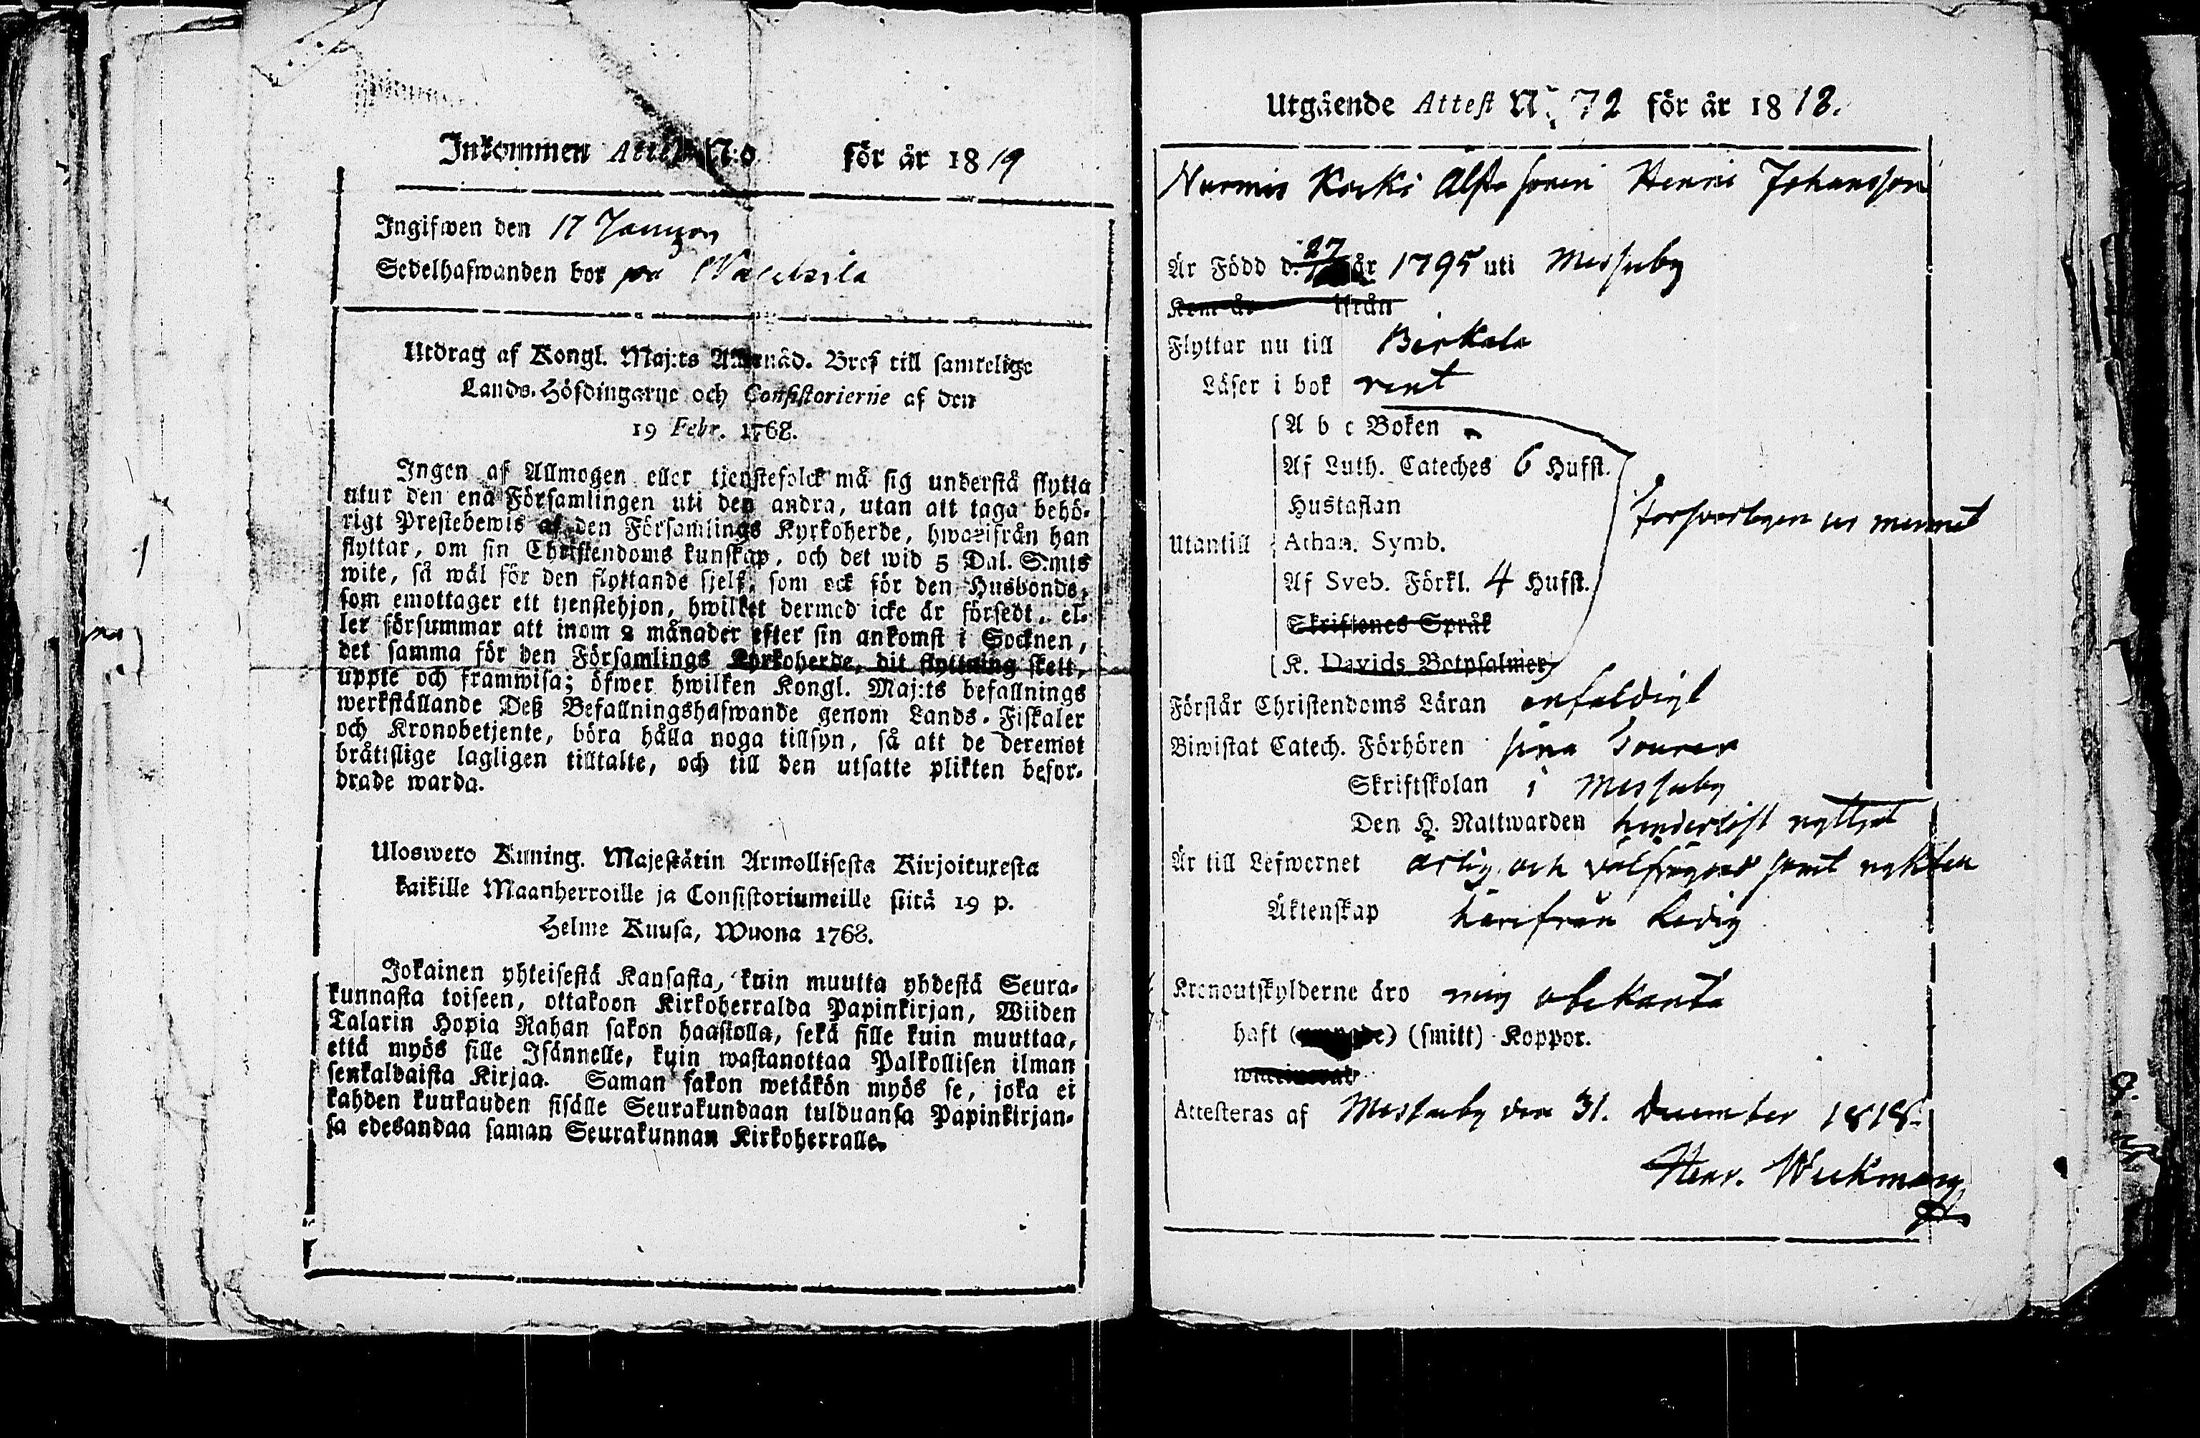 Inkommen Attest N:o för år 1819
Ingifwen den 17 Januari
Sedelhafwanden bor på
Utdrag af Kongl. Maj:ts Allernåd. Bref till samtelige
Lands-Höfdingarne och Consistorierne af den
19 Febr. 1768.
Ingen af Allmogen eller tjenstefolck må sig understå flytta
utur den ena Församlingen uti den andra, utan att taga behö-
rigt Prestebewis af den Församlings Kyrkoherde, hwarifrån han
flyttar, om sin Christendoms kunskap, och det wid 5 Dal. S:mts
wite, så wäl för den flyttande sjelf, som ock för den Husbonde,
som emottager ett tjenstehjon, hwilket dermed icke är försedt, el-
ler försummar att inom 2 månader efter sin ankomst i Socknen,
det samma för den Församlings Kyrkoherde, dit flyttning skett,
uppte och framwisa; öfwer hwilken Kongl. Maj:ts befallnings
werkställande Deß Befallningshafwande genom Lands-Fiskaler
och Kronobetjente, böra hålla noga tillsyn, så att de deremot
bråtislige lagligen tilltalte, och till den utsatte plikten befor-
drade warda.
Uloswero Kuning. Majestätin Armollisesta Kirjoituxesta
kaikille Maanherroille ja Consistoriumeille siitä 19 p.
Helme Kuusa, Wuona 1768.
Jokainen yhteisestä Kansasta, kuin muutta yhdestä Seura-
kunnasta toiseen, ottakoon Kirkoherralda Papinkirjan, Wiiden
Talarin Hopia Rahan sakon haastolla, sekä sille kuin muuttaa,
että myös sille Isännelle, kuin wastanottaa Palkollisen ilman
senkaldaista Kirjaa. Saman sakon wetäkön myös se, joka ei
kahden kuukauden sisälle Seurakundaan tulduansa Papinkirjan-
sa edesandaa saman Seurakunnan Kirkoherralle.
Utgående Attest N:o 72 för år 1818.
Nurmis Kocki Henric Johansson
Är Född d. 27 år 1795 uti Messuby
Kom år ifrån
Flyttar nu till Birkala
Läser i bok rent
A b c Boken
Af Luth. Cateches 6 Hufst.
Hustaflan
försvarligen ur minnet
Utantill Athan. Symb.
Af Sveb. Förkl. 4 Hufst.
Skriftenes Språk
K. Davids Botpsalmer
Förstår Christendoms Läran enfaldigt
Biwistat Catech. Förhören sina Tourer
Skriftskolan i Messuby
Den H. Nattwarden nyttjat
Är till Lefwernet ärlig och välfrägdad samt nykter
Äktenskap härifrån Ledig
Kronoutskylderne äro mig obekanta
haft (smitt) Koppor.
Attesteras af Messuby den 31. December 1818.
Henr. Weckman